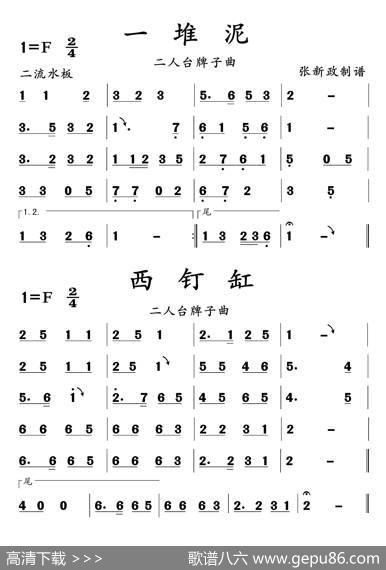 一 堆 泥
1=F 2/4
二人台牌子曲
二流水板
张新政制谱
1 1 2 | 3 2 3 | 5. 6 5 3 | 2 - |
3. 5 3 2 | 1. 7 | 6 1 5 6 | 1 - |
3. 2 3 2 | 1 1 2 3 5 | 2 7 6 1 | 5 0 5 |
3 3 0 5 | 7 7 0 2 | 6 7 2 | 3 5 |
1.2. 尾
1 3 2 6 | 1 - :| 1 3 2 3 6 | 1 - ||
西 钉 缸
1=F 2/4
二人台牌子曲
2 5 1 1 | 2 5 1 | 2. 1 2 5 | 1 - |
2 5 1 1 | 2 5 1 | 2 4 6 5 | 5. 4 |
5. 6 1 | 2. 7 6 5 | 4 5 6 5 | 4. 5 |
6 6 6 5 | 6 6 6 3 | 2 2 3 1 | 2 - |
6. 6 6 5 | 6 6 6 3 | 2. 2 3 1 | 2 - ||
尾
4 0 0 | 6. 6 6 5 | 6 6 6 3 | 2. 2 3 1 | 2 - ||
高清下载 >>>
歌谱八六 www.gepu86.com